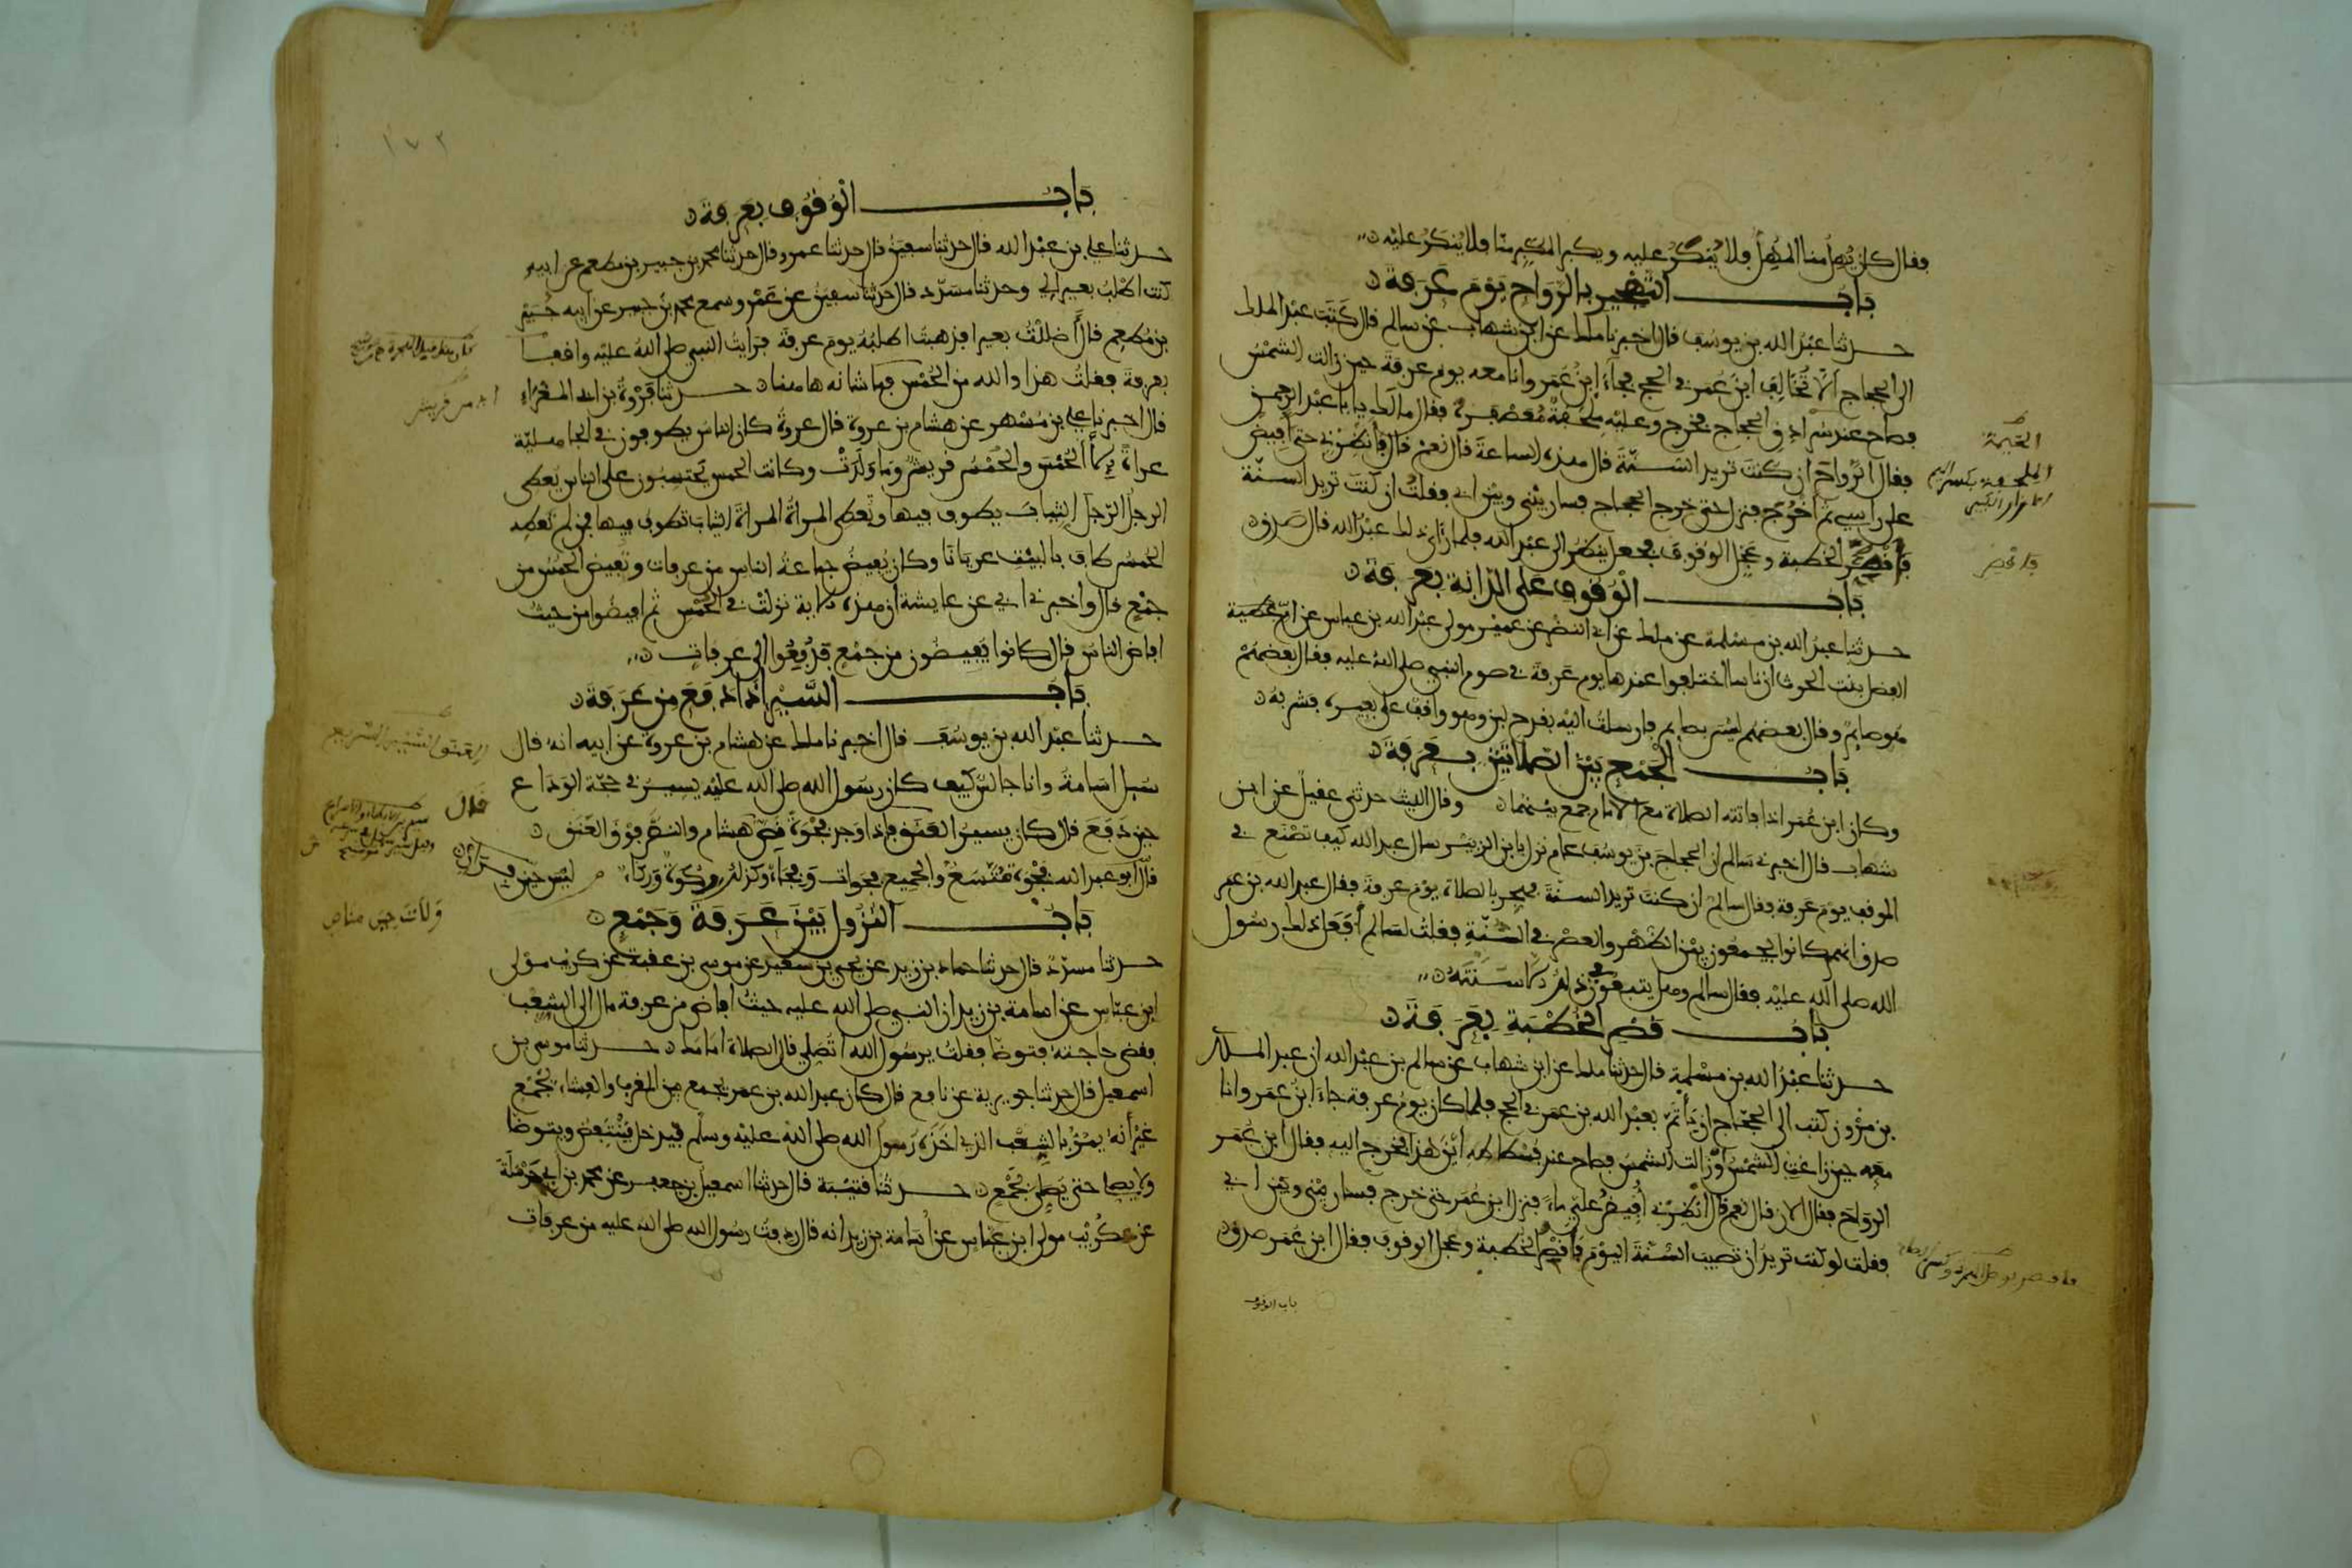 فقال كان يُهِلّ منا المُهِلّ فلا يُنكَرُ عليه ويكبر المكبر منّا فلا يُنكرُ عليْه
بَابُ التهْجير بالرّوَاحِ يَوْمَ عَرَفةَ
حدثنا عبْدُ الله بن يوسُف قال اخبرنا ملك عن ابن شهاب عن سالم قال كتَبَ عبْد الملك
الى الحجاج ألاّ تُخالِفَ ابنَ عُمَر في الحج فجآءَ ابنُ عُمَر وانا معه يوم عرفة حين زالت الشمْسُ
فصاح عند سُرادِق الحجاج فخرج وعليْهِ مِلحَفةٌ مُعصْفرةٌ فقال ما لك يابا عبْد الرحمن
فقال الرّواحَ ان كنتَ تريد السّنّةَ قال هذه الساعةَ قال نعمْ قال فأنظِرْني حتى افيضَ
على راسي ثم أخْرُج فنزل حتى خرج الحجاج فسار بيْني وبيْن ابي فقلتُ ان كنتَ تريد السنّة
فَأقصُر الخطبة وعَجّل الوُقوفَ فجعل ينظرُ الى عبْد الله فلما رَأى ذلك عبْدُ الله قال صَدَق
بَابُ الوُقوفِ عَلى الدّابة بعَرَفةَ
حدثنا عبدُ الله بن مسْلمة عن ملك عن ابي النضْر عن عميْر مولى عبْد الله بن عباس عن امّ
الفضل بنت الحرث ان ناسا اختلفوا عندها يوم عَرفةَ في صوم النبي صلى اللهُ عليه فقال بعضهُمْ
هُوَ صايمٌ وقال بعضهم ليْسَ بصايم فارسلتْ اليْه بقدح لبن وهو واقف على بعيره فشربهُ
بَابُ الْجَمْع بيْن الصّلاتيْن بعَرَفةَ
وكان ابن عُمَر اذا فاتته الصلاة مع الامام جمع بيْنهُما وقال الليث حدثني عقيل عن ابن
شهاب قال اخبرني سَالم ان الحجاجَ بنَ يوسُف عام نزل بابن الزبيْر سال عبد الله كيف تصْنَع في
الموقف يوم عَرفة فقال سالمٌ ان كنتَ تريد السنّةَ فهجّر بالصلاة يوْم عرفةَ فقال عبد الله بن عمر
صدق انهم كانوا يجمعُون بيْن الظهْر والعصْر في السُّنّةِ فقلتُ لسَالم أفعَل ذلك رسُول
الله صلى الله عليْه فقال سالم وهل يتبعُون في ذلك الاَّ سَنّتَهُ
بَابُ قصْر الخطبَةِ بعَرَفةَ
حدثنا عبْدُ الله بن مسْلمة قال حدثنا ملك عن ابن شهاب عن سالم بن عبْد الله ان عبد الملك
بن مرْوان كتب الى الحجّاج ان يَأتمّ بعبْد الله بن عمَر في الحج فلما كان يومُ عرفة جاءَ ابنُ عمَر وانا
معَه حين زاغتِ الشمْسُ أوْ زالت الشمسُ فصاح عند فُسْطاطِهِ أيْنَ هذا فخرج اليه فقال ابن عُمَر
الرّوَاحَ فقال الان قال نعم قال أنظِرْني أُفيضُ عليَّ ماءً فنزل ابن عُمَر حتى خرج فسار بيْني وبيْن ابي
فقلت لو كنت تريدُ ان تصيبَ السُّنّةَ اليوْم فَأقصُر الخطبة وعجّل الوقوف فقال ابن عُمر صدق
باب الوقوف
بَابُ الوُقُوفِ بعَرفةَ
حدثنا علي بن عبْد الله قال حدثنا سفيَنُ قال حدثنا عمرو قال حدثنا محمد بن جبير بن مطعم عن ابيه
كنت اطلبُ بعيرا لي وحدثنا مسَدّد قال حَدثنا سفيَنُ عن عَمْرو سمع محمد بن جبير عن ابيه جُبَيْر
بن مُطعِم قال أَضللْتُ بعيرا فذهبتُ اطلبُهُ يوم عرفةَ فرَايتُ النبي صلى اللهُ عليْه واقفا
بعرفةَ فقلتُ هذا والله من الحُمْس فما شانه هاهنا حدثنا فرْوةُ بن ابي المغراءِ
قال اخبرنا علي بن مُسْهر عن هشام بن عروة قال عروةُ كان الناس يطوفون في الجاهليّة
عراةً إلاّ الحُمْسَ والحُمْسُ قريشٌ وَمَا وَلَدَتْ وكانت الحمس يَحتسِبُون على الناس يُعطي
الرجلُ الرّجلَ الثيابَ يطوف فيها وتُعطي المرأةُ المرأةَ الثيابَ تطوف فيها فمن لم تعطِهِ
الحُمسُ طاف بالبيْت عريانا وكان يُفيضُ جماعةُ الناس من عرفات وتُفيضُ الحُمْسُ من
جمْع قال واخبرني ابي عن عايشة ان هذه الاية نزلتْ في الحُمْس ثم افيضُوا من حيثُ
افاض الناس قال كانوا يُفيضُون من جمْع فدُفِعُوا الى عرفاتٍ
بَابُ السَّيْر إذا دَفَعَ من عَرَفَةَ
حدثنا عبْد الله بن يوسُفَ قال اخبرنا ملك عن هشام بن عروة عن ابيه انه قال
سُيلَ اسَامةُ وانا جالسٌ كيف كان رسُول الله صلى الله عليْه يسيرُ في حجّة الوداع
حين دَفعَ قال كان يسيرُ العَنَق فإذا وَجدَ فجْوَةً نَصّ قال هشام والنّصُّ فوْقَ العَنَق
قال ابو عبد الله فجْوةٌ مُتّسَعٌ والجميع فجَوات وَفِجَاءٌ وكذلك رَكوَةٌ وَرِكاءٌ ليْس حين فرَار
بَابُ النُّزول بَيْنَ عَرَفةَ وَجَمْعٍ
حدثنا مسدّد قال حدثنا حماد بن زيد عن يحيى بن سعيد عن موسى بن عقبة عن كريب موْلى
ابن عبّاس عن اسامة بن زيد ان النبي صلى الله عليه حيثُ افاض من عرفة مال الى الشعْب
فقضى حاجته فتوضّا فقلت يرسُول الله اتُصَلي قال الصلاة امَامك حدثنا موسى بن
اسمعيل قال حدثنا جويرية عن نافع قال كان عبد الله بن عمر يجمع بين المغرب والعشاء بجَمْع
غيْر أنه يمُرّ بالشِّعْب الذي اخَذَهُ رَسولُ الله صلى الله عليْه وسلم فيدخل فيَنْتفِضُ ويتوضا
ولا يصلي حتى يَصلي بجَمْع حدثنا قتيْبة قال حدثنا اسمعيل بن جعفر عن محمد بن ابي حَرْمَلَة
عن كُرَيْب مولى ابن عبّاس عن أسَامة بن زيد انه قال ردفتُ رسُول الله صلى الله عليه من عرفات
١٧٢
قال
وَلاَتَ حِينَ مناص